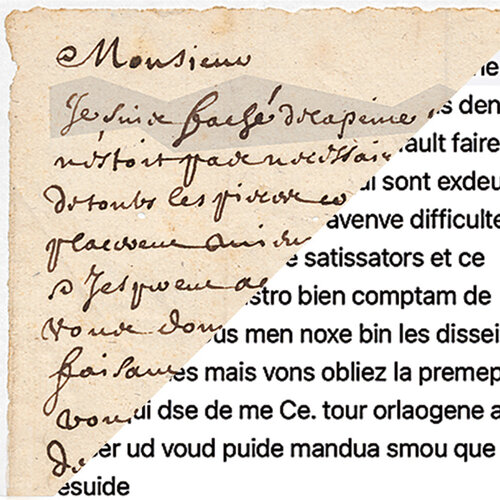 Monsieur
ne
Je suis faché de la peine s den
n'estoit pas necessai ault faire
de touts les pieces co ui sont exdeu
avenve difficulte
e satissators et ce
stro bien comptam de
vous don us men noxe bin les dissei
faisant es mais vons obliez la premep
vou ui dse de me Ce. tour orlaogene a
de er ud voud puide mandua smou que
esuide